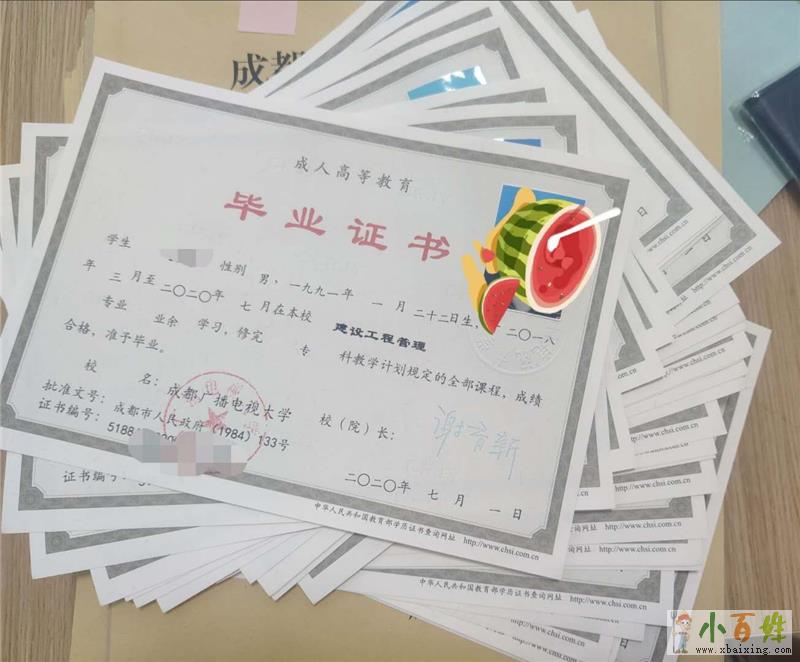 成都
成人高等教育
毕业证书
学生 性别 男，一九九一年 一 月 二十二日生， 二〇一八
年 三 月至 二〇二〇年 七 月在本校 建设工程管理
专业 业余 学习，修完 专 科教学计划规定的全部课程，成绩
合格，准予毕业。
校 名：成都广播电视大学
校（院）长：谢青新
批准文号：成都市人民政府（1984）133号
证书编号：5188
二〇二〇年 七 月 一 日
中华人民共和国教育部学历证书查询网址 http://www.chsi.com.cn
证书编号：
中华人民共和国教育部学历证书查询网址 http://www.chsi.com.cn
http://www.chsi.com.cn
http://www.chsi.com.cn
http://www.chsi.com.cn
小百姓
www.xbaixing.com